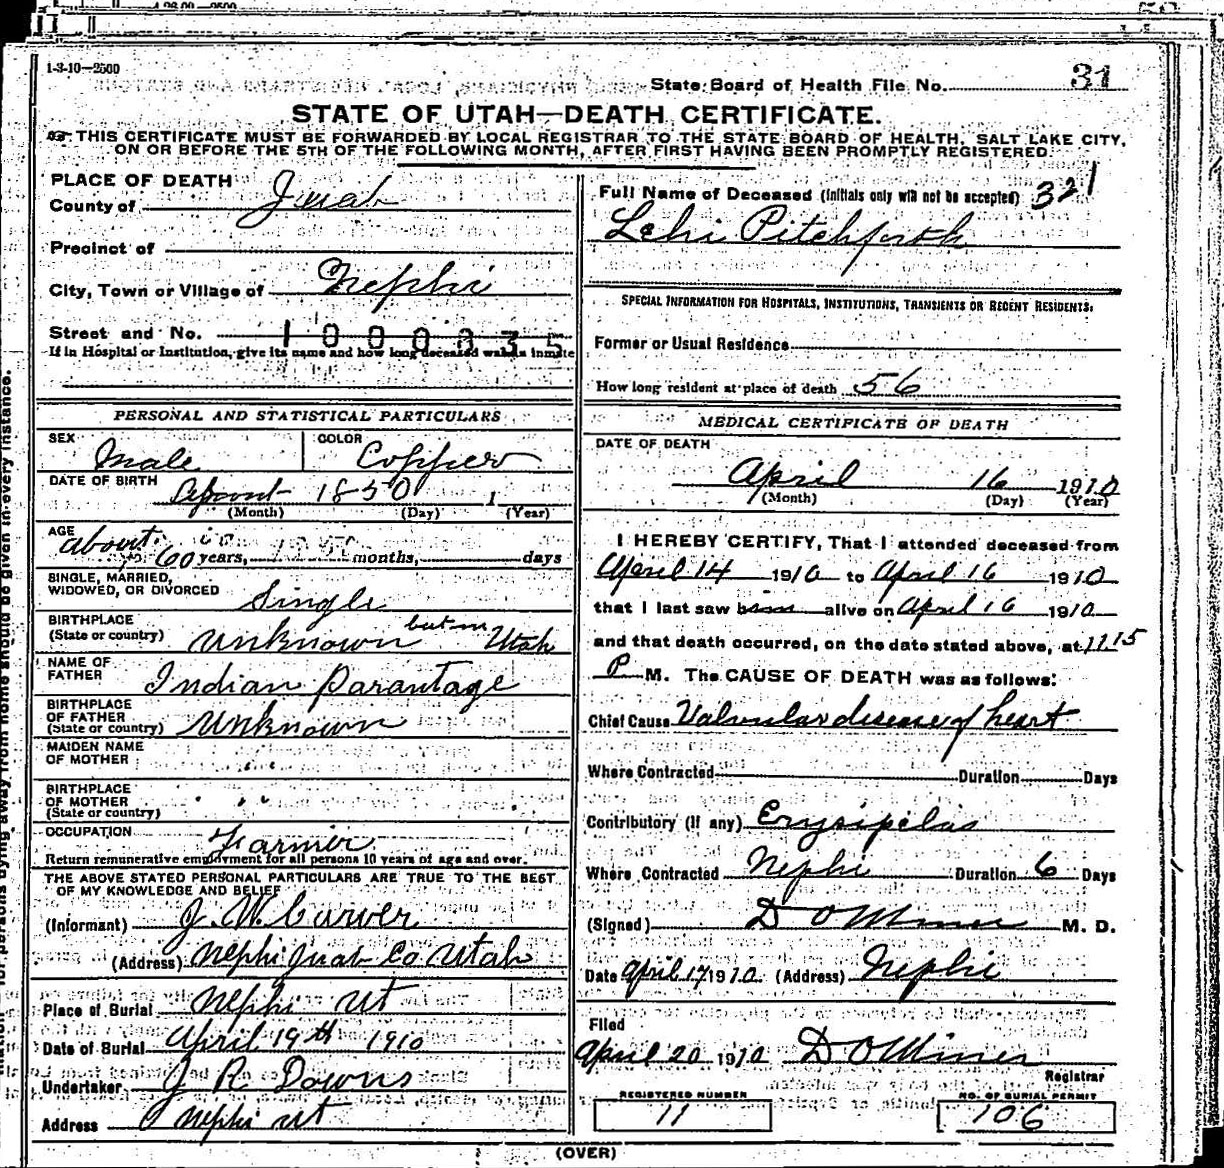 1-3-10—2500
State Board of Health File No. 31
STATE OF UTAH—DEATH CERTIFICATE.
THIS CERTIFICATE MUST BE FORWARDED BY LOCAL REGISTRAR TO THE STATE BOARD OF HEALTH, SALT LAKE CITY,
ON OR BEFORE THE 5TH OF THE FOLLOWING MONTH, AFTER FIRST HAVING BEEN PROMPTLY REGISTERED.
PLACE OF DEATH
County of Juab
Precinct of
City, Town or Village of Nephi
Street and No. 1000835
If in Hospital or Institution, give its name and how long deceased was an inmate
PERSONAL AND STATISTICAL PARTICULARS
SEX Male
COLOR Copper
DATE OF BIRTH About 1850 1
(Month) (Day) (Year)
AGE About 60 years, months, days
SINGLE, MARRIED,
WIDOWED, OR DIVORCED Single
BIRTHPLACE
(State or country) Unknown but in Utah
NAME OF
FATHER Indian Parantage
BIRTHPLACE
OF FATHER
(State or country) Unknown
MAIDEN NAME
OF MOTHER " "
BIRTHPLACE
OF MOTHER
(State or country) " "
OCCUPATION Farmer
Return remunerative employment for all persons 10 years of age and over.
THE ABOVE STATED PERSONAL PARTICULARS ARE TRUE TO THE BEST
OF MY KNOWLEDGE AND BELIEF
(Informant) J. W. Carver
(Address) Nephi Juab Co Utah
Place of Burial Nephi Ut
Date of Burial April 19th 1910
Undertaker J R Downs
Address Nephi Ut
Full Name of Deceased (Initials only will not be accepted) 321
Lehi Pitchforth
SPECIAL INFORMATION FOR HOSPITALS, INSTITUTIONS, TRANSIENTS OR RECENT RESIDENTS:
Former or Usual Residence
How long resident at place of death 56
MEDICAL CERTIFICATE OF DEATH
DATE OF DEATH
April 16 1910
(Month) (Day) (Year)
I HEREBY CERTIFY, That I attended deceased from
April 14 1910 to April 16 1910
that I last saw him alive on April 16 1910
and that death occurred, on the date stated above, at 11.15
P M. The CAUSE OF DEATH was as follows:
Chief Cause Valvular disease of heart
Where Contracted Duration Days
Contributory (if any) Erysipelas
Where Contracted Nephi Duration 6 Days
(Signed) D O Miner M. D.
Date April 17 1910 (Address) Nephi
Filed
April 20 1910 D O Miner
Registrar
REGISTERED NUMBER
11
NO. OF BURIAL PERMIT
106
(OVER)